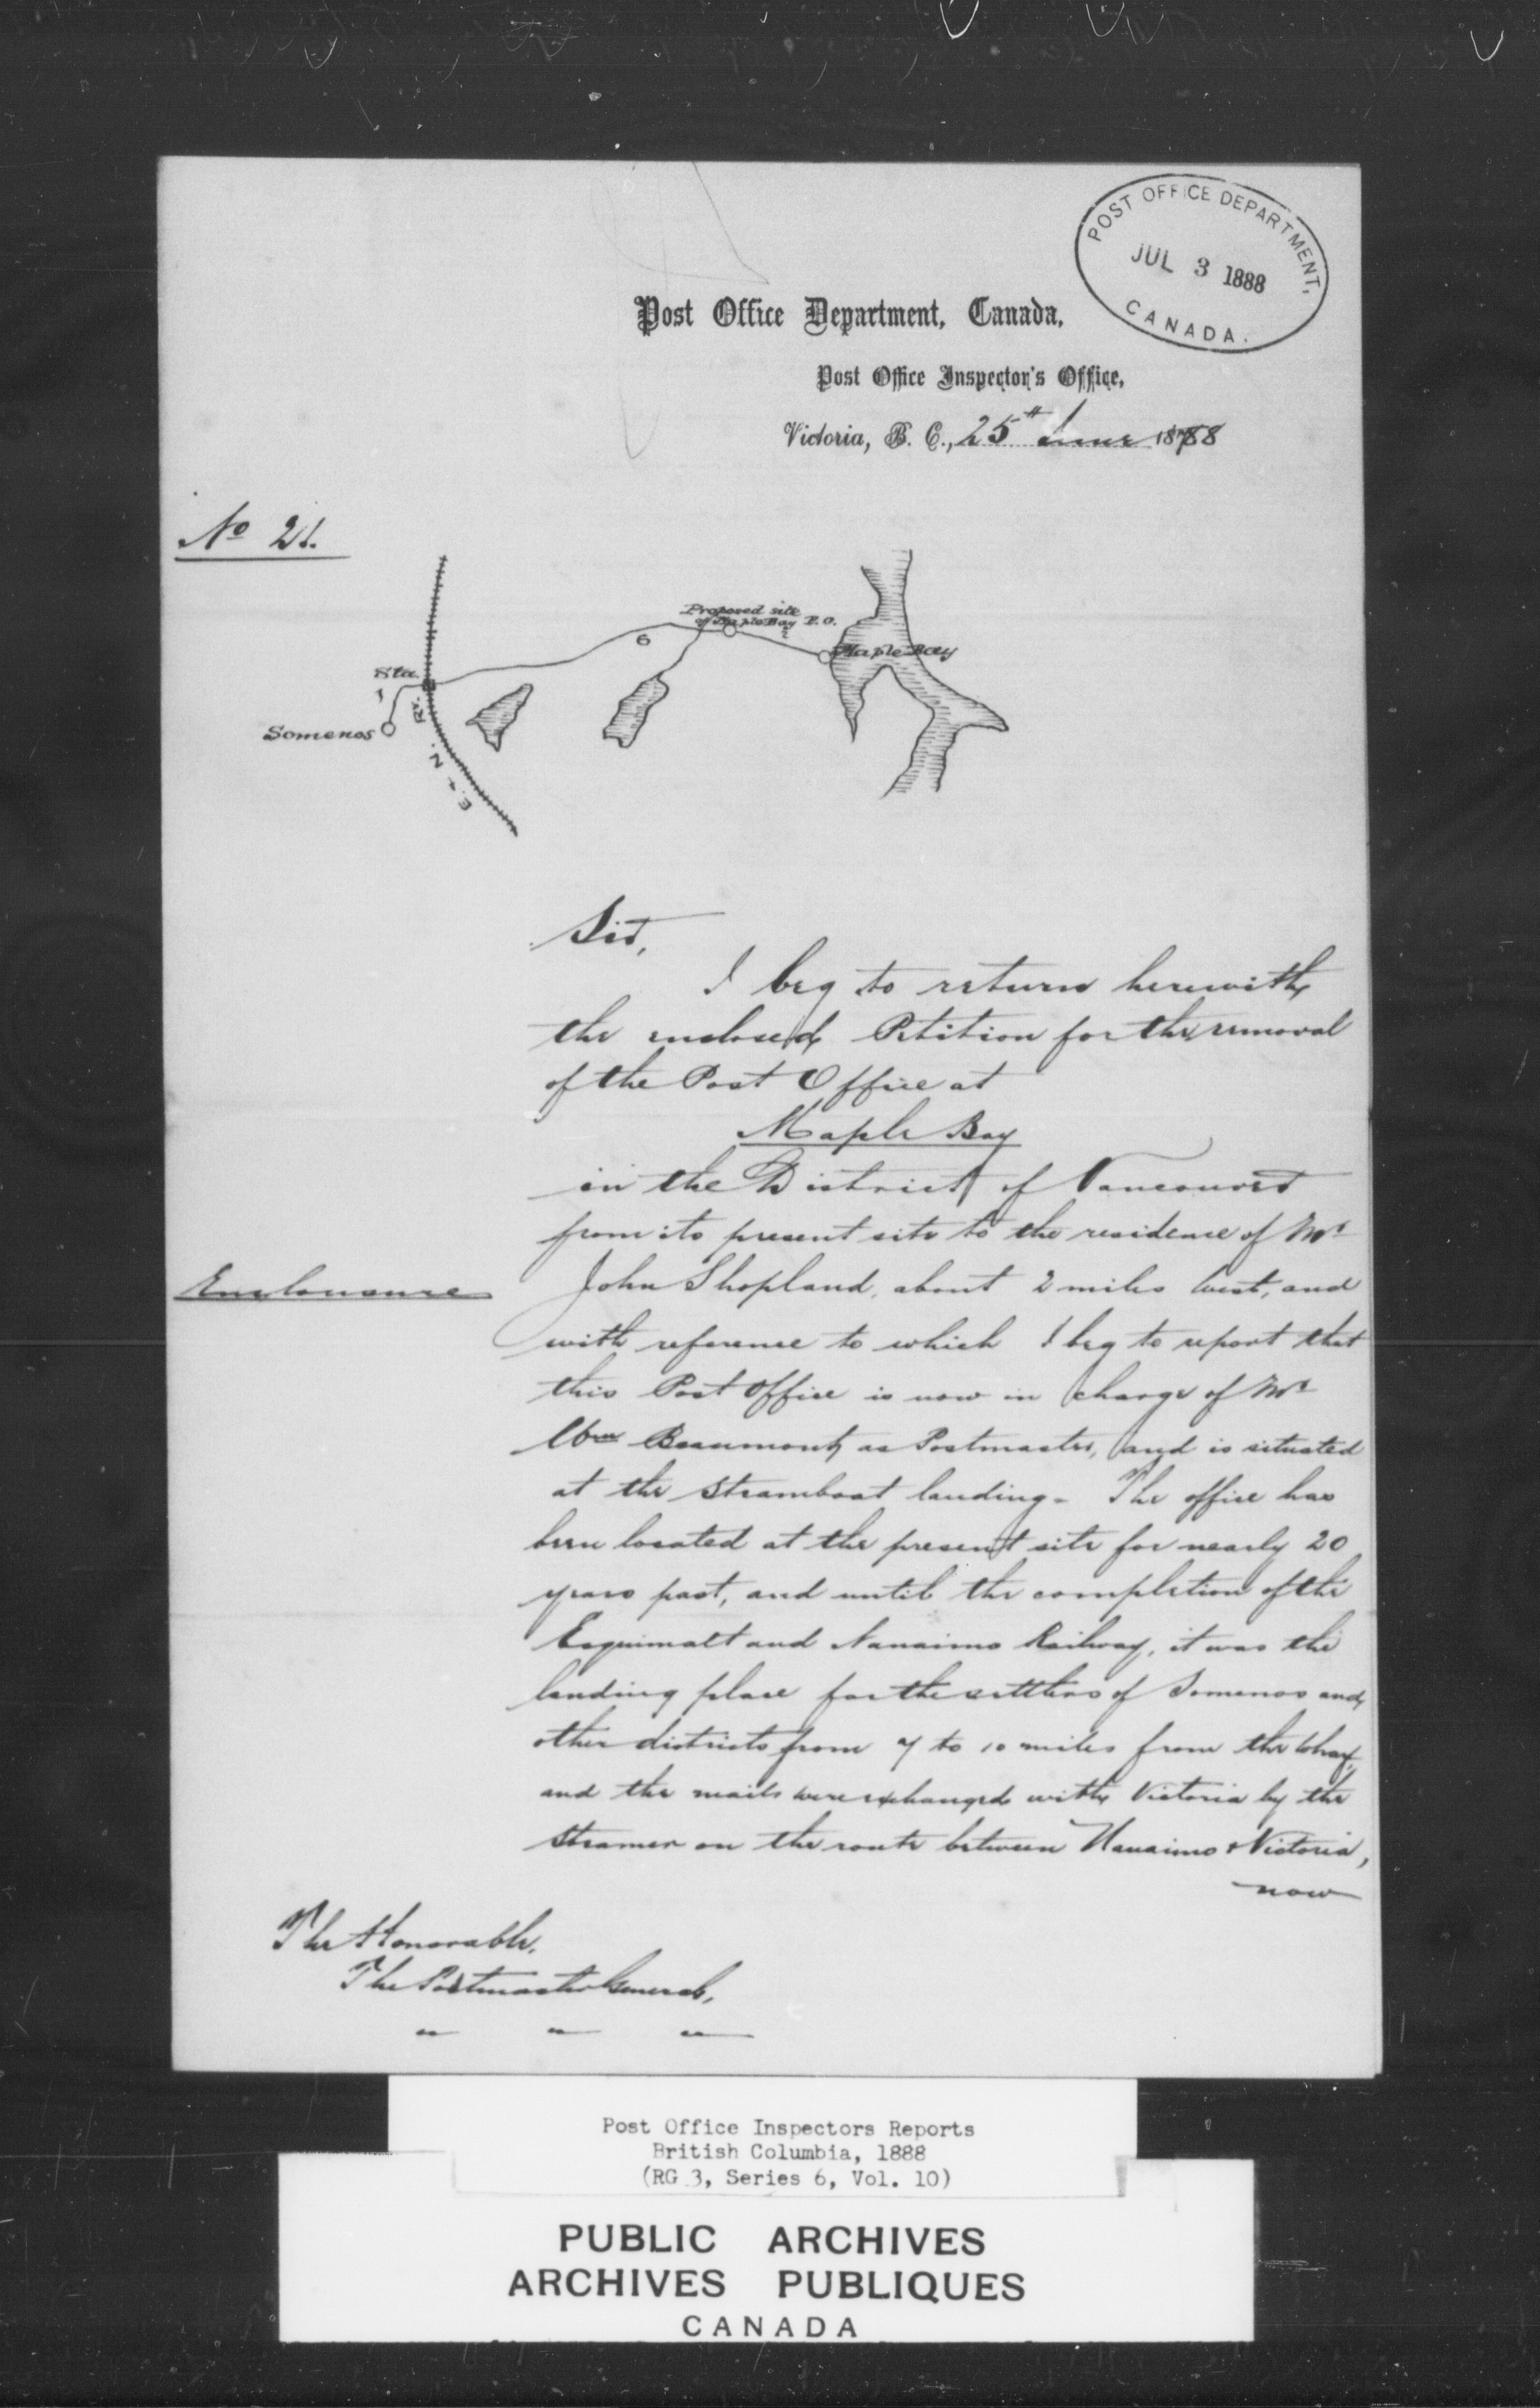 POST OFFICE DEPARTMENT,
JUL 3 1888
CANADA.
Post Office Department, Canada,
Post Office Inspector's Office,
Victoria, B. C., 25th June 1888
No 21.
Proposed site
of Maple Bay P.O.
6
2
Maple Bay
Sta.
1
Somenos
E. & N. Ry.
Sir,
I beg to return herewith
the enclosed Petition for the removal
of the Post Office at
Maple Bay
in the District of Vancouver
from its present site to the residence of Mr
Enclosure
John Shopland, about 2 miles West, and
with reference to which I beg to report that
this Post Office is now in charge of Mr
Wm Beaumont, as Postmaster, and is situated
at the steamboat landing. The office has
been located at the present site for nearly 20
years past, and until the completion of the
Esquimalt and Nanaimo Railway, it was the
landing place for the settlers of Somenos and
other districts from 7 to 10 miles from the Wharf,
and the mails were exchanged with Victoria by the
Steamer on the route between Nanaimo & Victoria,
now
The Honorable,
The Postmaster General,
" " "
Post Office Inspectors Reports
British Columbia, 1888
(RG 3, Series 6, Vol. 10)
PUBLIC ARCHIVES
ARCHIVES PUBLIQUES
CANADA